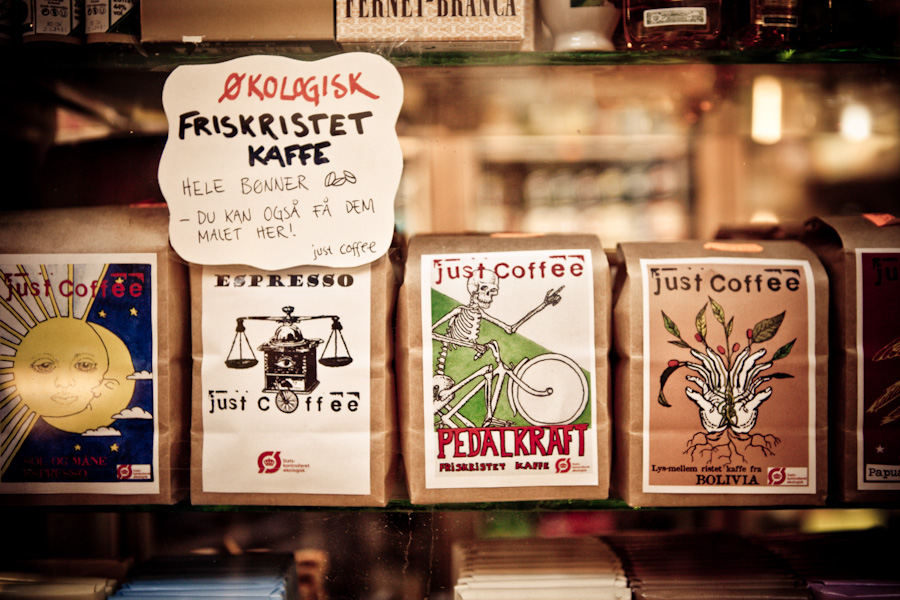 FERNET-BRANCA
ØKOLOGISK
FRISKRISTET
KAFFE
HELE BØNNER
- DU KAN OGSÅ FÅ DEM
MALET HER!
just coffee
just Coffee
SOL OG MÅNE
ESPRESSO
ESPRESSO
just Coffee
Stats-
kontrolleret
økologisk
just Coffee
PEDALKRAFT
FRISKRISTET KAFFE
just Coffee
Lys-mellem ristet kaffe fra
BOLIVIA
Stats-
kontrolleret
økologisk
Papua